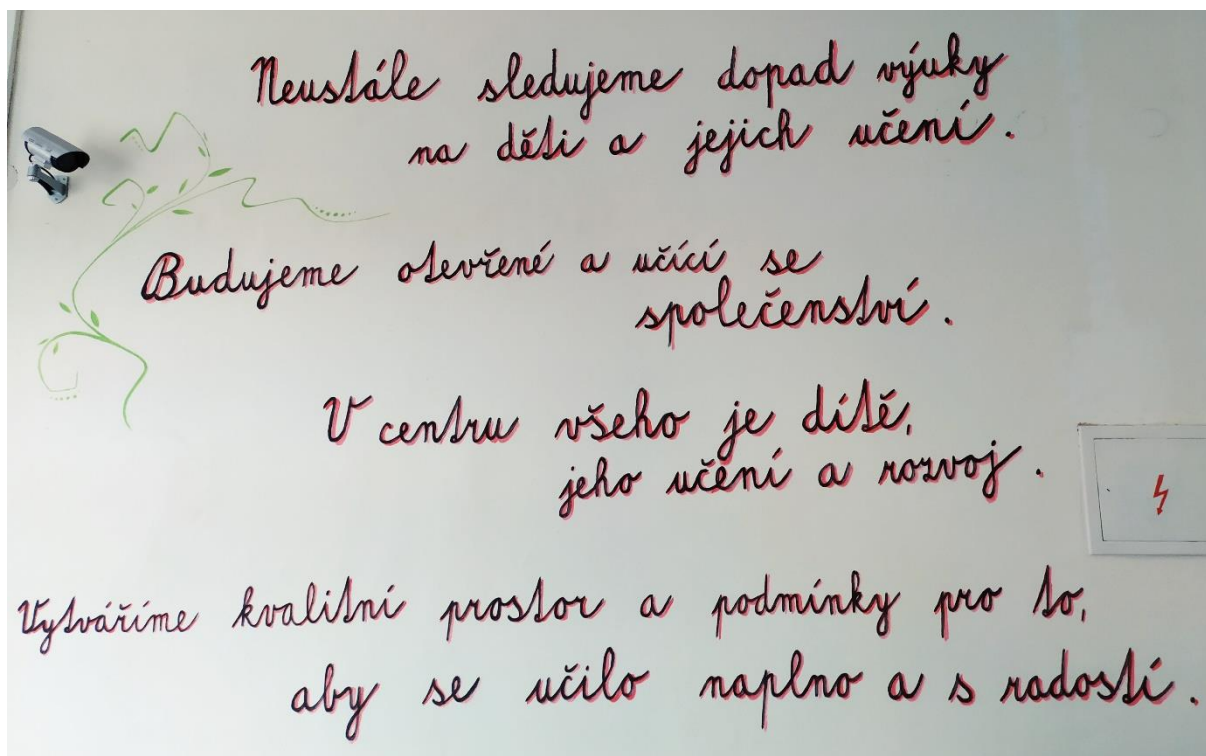 Neustále sledujeme dopad výuky
na děti a jejich učení.
Budujeme otevřené a učící se
společenství.
V centru všeho je dítě,
jeho učení a rozvoj.
Vytváříme kvalitní prostor a podmínky pro to,
aby se učilo naplno a s radostí.